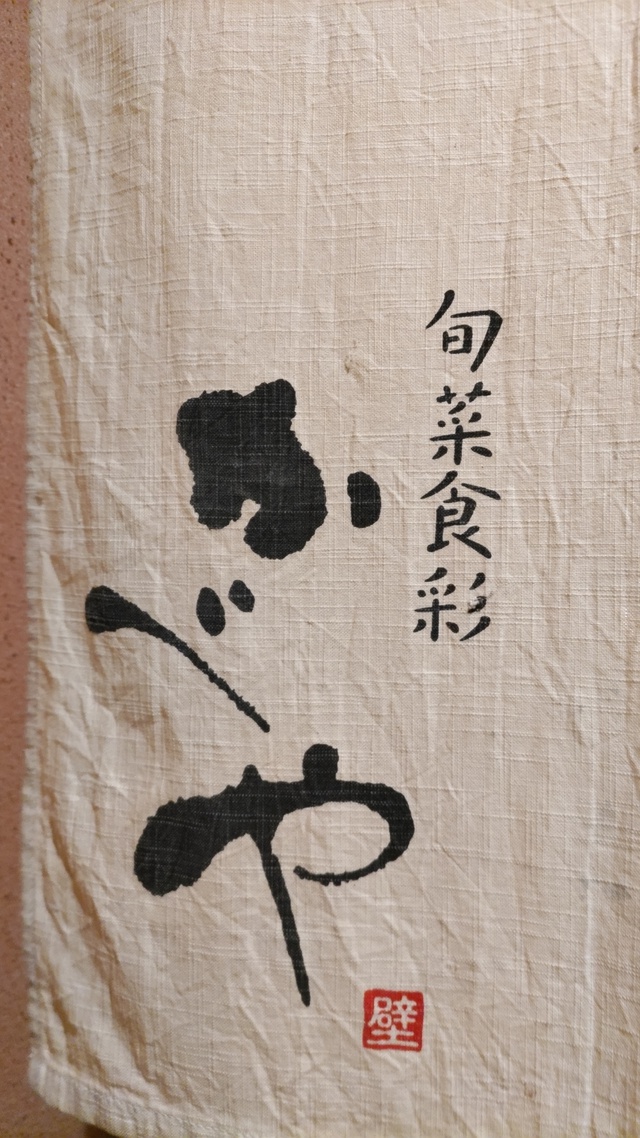 旬菜食彩
かべや
壁